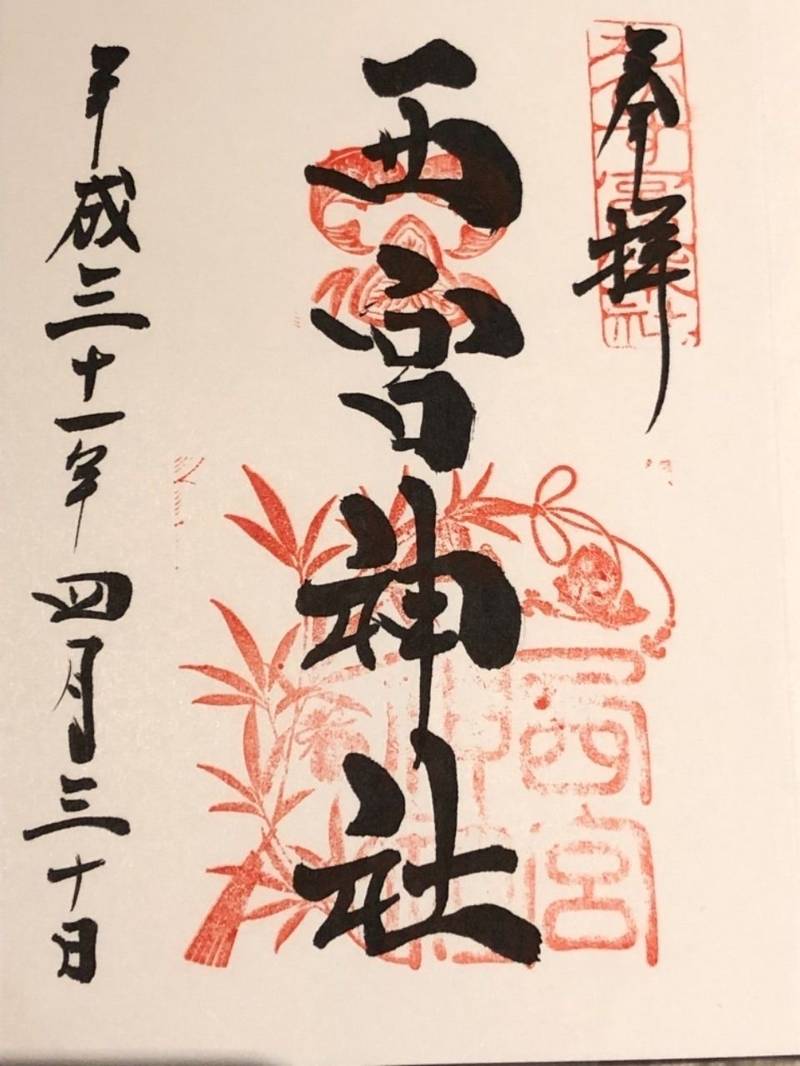 奉拝
西宮神社
平成三十一年四月三十日
西宮